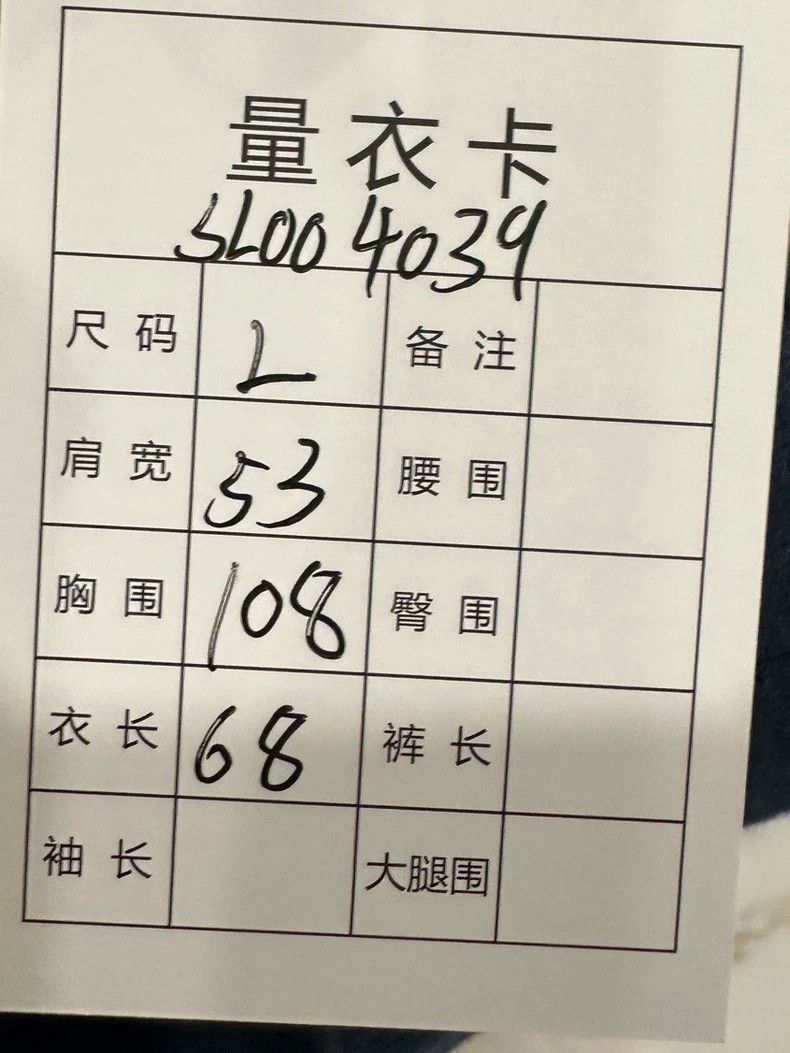 量衣卡
SL004039
尺码 L 备注
肩宽 53 腰围
胸围 108 臀围
衣长 68 裤长
袖长 大腿围